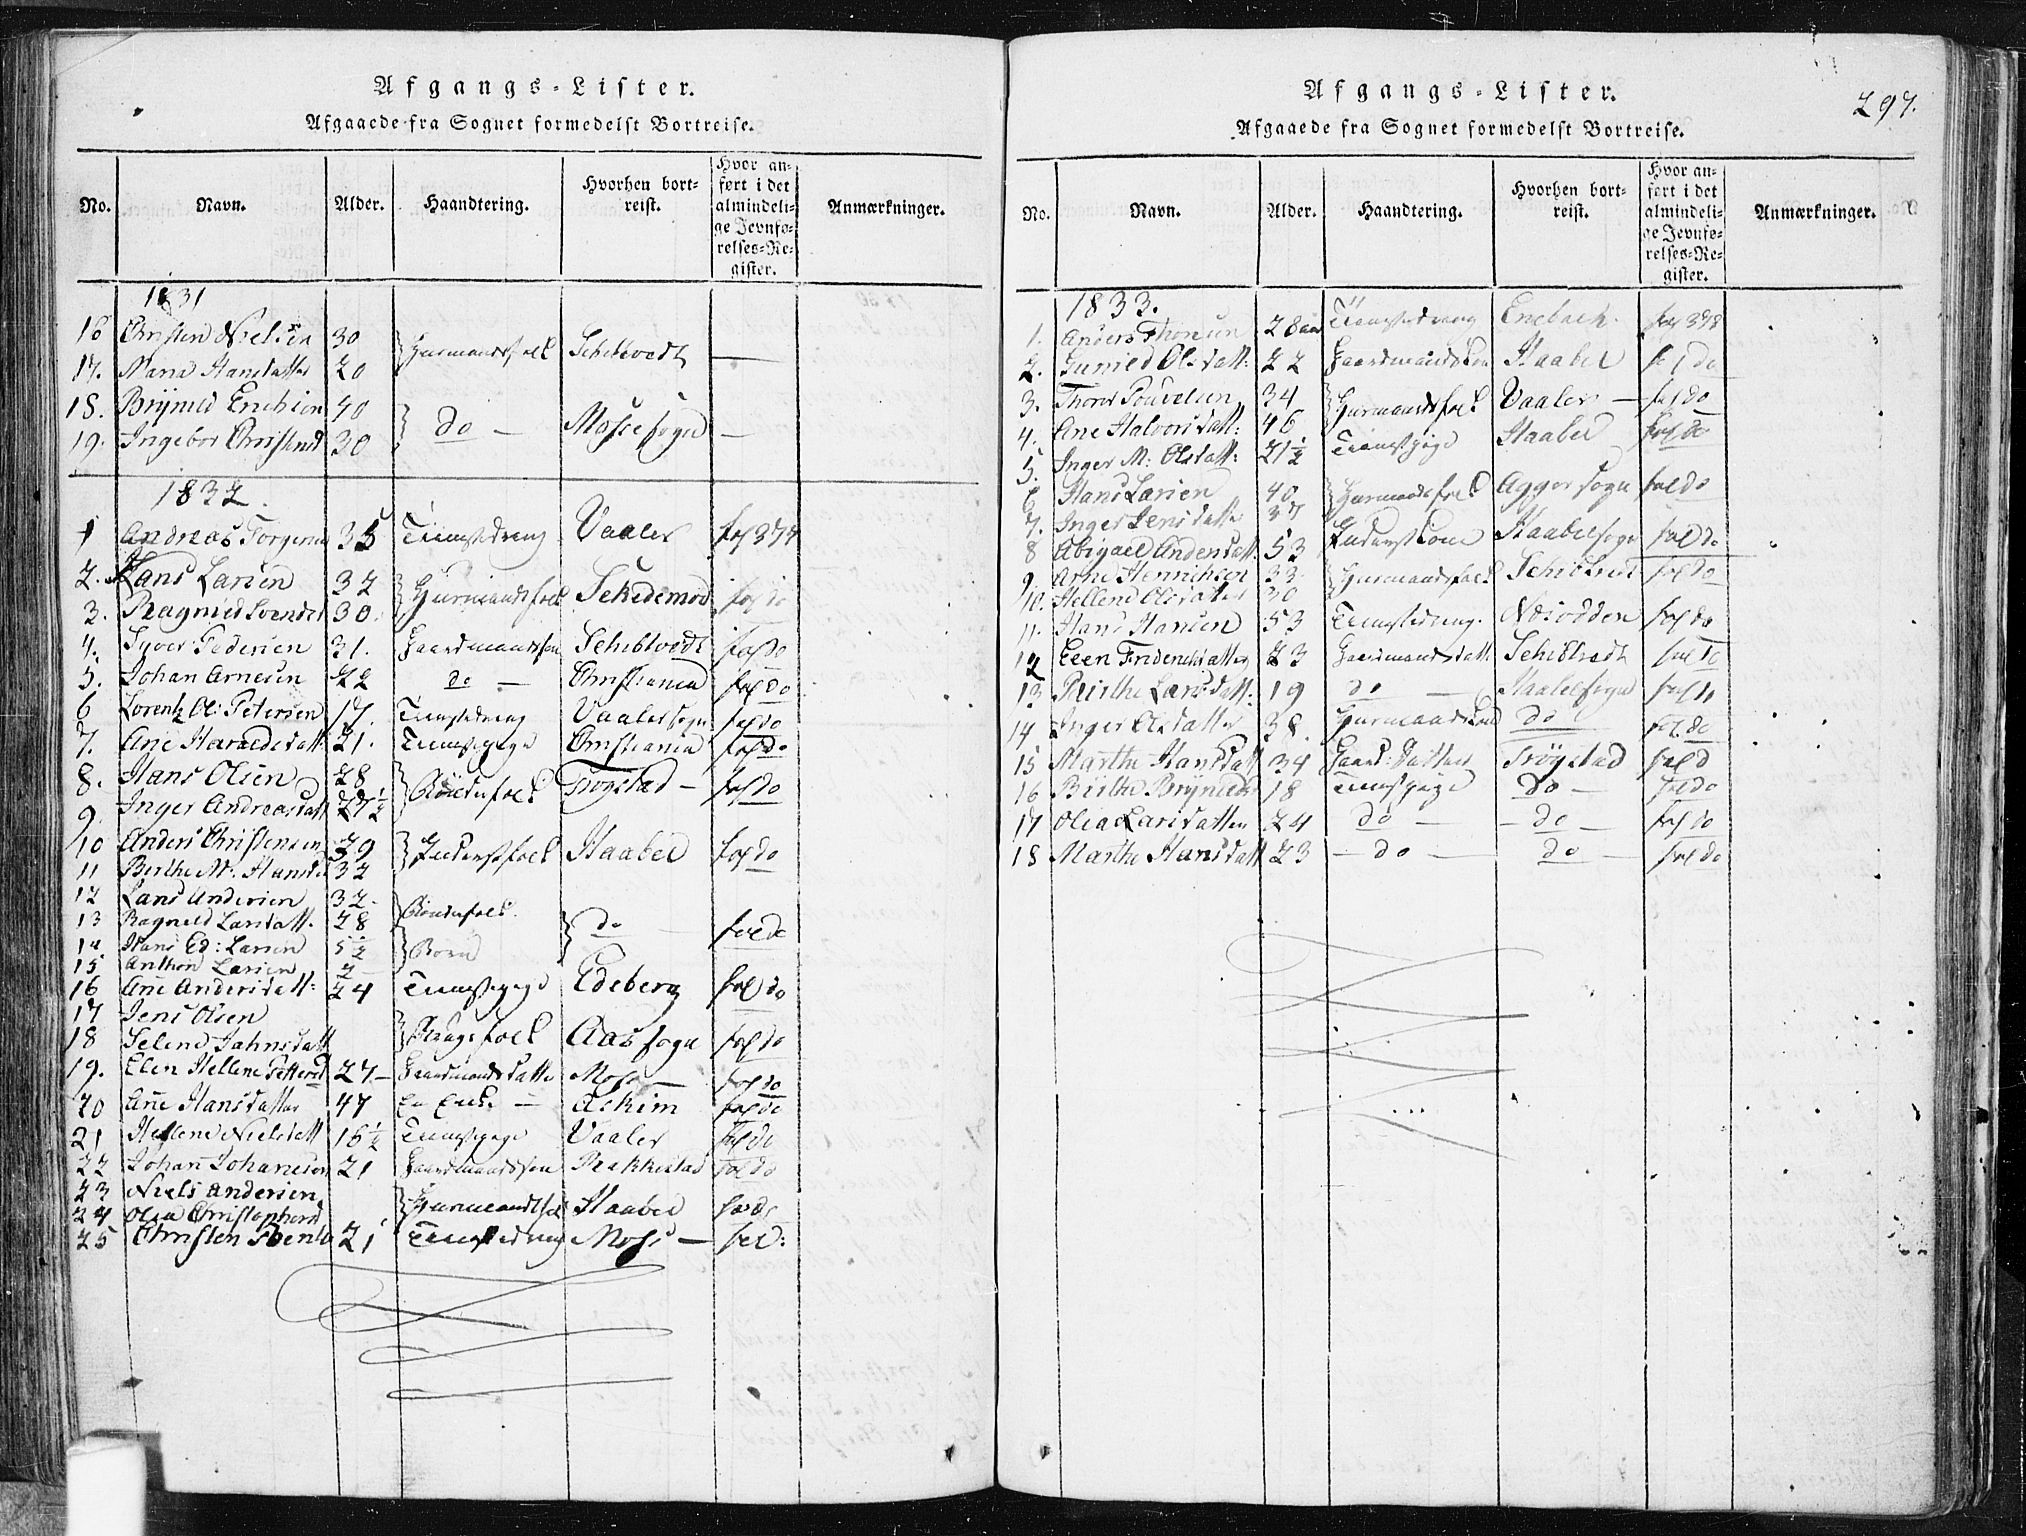 Afgangs-Lister.
Afgaaede fra Sognet formedelst Bortreise.
No. Navn. Alder. Haandtering. Hvorhen bortreist. Hvor anført i det almindelige Jevnførelses-Register. Anmærkninger.
1831
16 Christen Nielsen 30 Huusmandsfolk Schibtvedt —
17. Maria Hansdatter 20
18. Brynild Erichsen 40 do — Mosse sogn —
19. Ingebor Christensd 30
1832.
1 Andreas Torgersen 35 Tienestedreng Vaaler fol 374
2. Hans Larsen 32 Huusmandsfolk fol do
3. Ragnild 30.
4. Syver Pedersen 31. Gaardmandssøn Schibtvedt fol do
5. Johan Arnesen 22 do — Christiania fol do
6 Lorentz Ol: Petersen 17. Tienestedreng Vaaler sogn fol do
7. Ane Haraldsdatt 21. Tienestepige Christiania fol do
8. Hans Olsen 28 Bøndefolk Trøgstad — fol do
9. Inger Andreasdatt 27½
10 Anders Christensen 29 Inderstfolk Haabøl fol do
11 Birthe M. Hansd 32
12 Lars Andersen 32. Bøndefolk. do fol do
13 Ragnild Larsdatt. 28
14 Hans Ed: Larsen 5½ Børn
15 Anthon Larsen 2
16 Ane Andersdatt: 24 Tienestepige Edeberg fol do
17 Jens Olsen Brugsfolk Aas sogn fol do
18 Selene Jahnsdatt
19. Elen Hellene Pettersd 27 — Gaardmandsdatte Moss — fol do
20 Ane Hansdatter 47 En Enke — Askim fol do
21 Hellene Nielsdatt 16½ Tienestepige Vaaler fol do
22 Johan Johanesen 21 Gaardmandssøn Rakkestad fol do
23 Niels Andersen Huusmandsfol Haabøl fol do
24 Olea Christophersd
25 Christen 21 Tienestedreng Moss — fol d:
Afgangs-Lister.
297.
Afgaaede fra Sognet formedelst Bortreise.
No. Navn. Alder. Haandtering. Hvorhen bortreist. Hvor anført i det almindelige Jevnførelses-Register. Anmærkninger.
1833.
1. Anders Thorsen 28 aar Tienestedreng Enebach. fol 398
2. Gunild Olsdatt: 22 Haabøl fol do
3. Thore Poulsen 34 Huusmandsfolk Vaaler — fol do
4. Ane Halvorsdatt: 46
5. Inger M: Olsdatt: 21½ Tienestpige Haabøl fol do
6 Hans Larsen 40 Huusmandsfolk Agger sogn fol do
7. Inger Jensdatter 37
8 Abigael Andersdatt 53 Inderstkone Haabøl sogn fol do
9. Arne Henrichsen 33 Huusmandsfolk Schibtvedt fol do
10. Hellene Olsdatter 30
11. Hans Hansen 53 Tienestedreng. Næsodden fol do
12 Elen Friderichsdatter 23 Gaardmandsdatte Schibtvedt fol do
13 Birthe Larsdatt. 19 do — Haabøl sogn fol do
14 Inger Olsdatter 38. do fol do
15 Marthe Hansdatt 34 Gaard: Datter Trøgstad fol d
16 Birthe Brynilds 18 Tienestpige do — fol do
17 Olea Larsdatter 24 do — — do — fol do
18 Marthe Hansdatt 23 — do — do — fol do